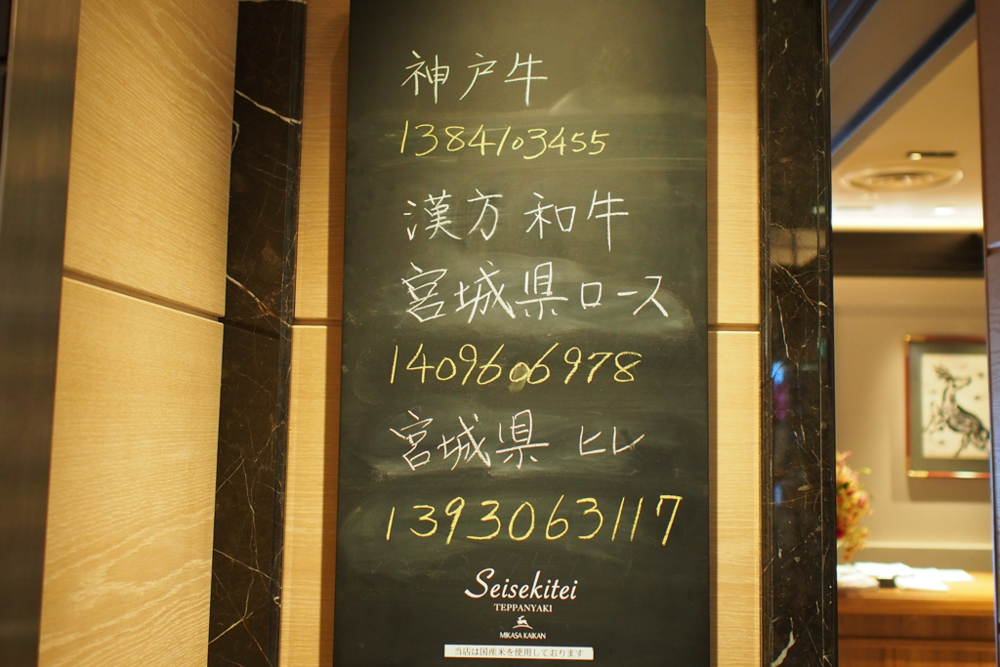 神戸牛
1384103455
漢方和牛
宮城県ロース
1409606978
宮城県 ヒレ
1393063117
Seisekitei
TEPPANYAKI
MIKASA KAIKAN
当店は国産米を使用しております